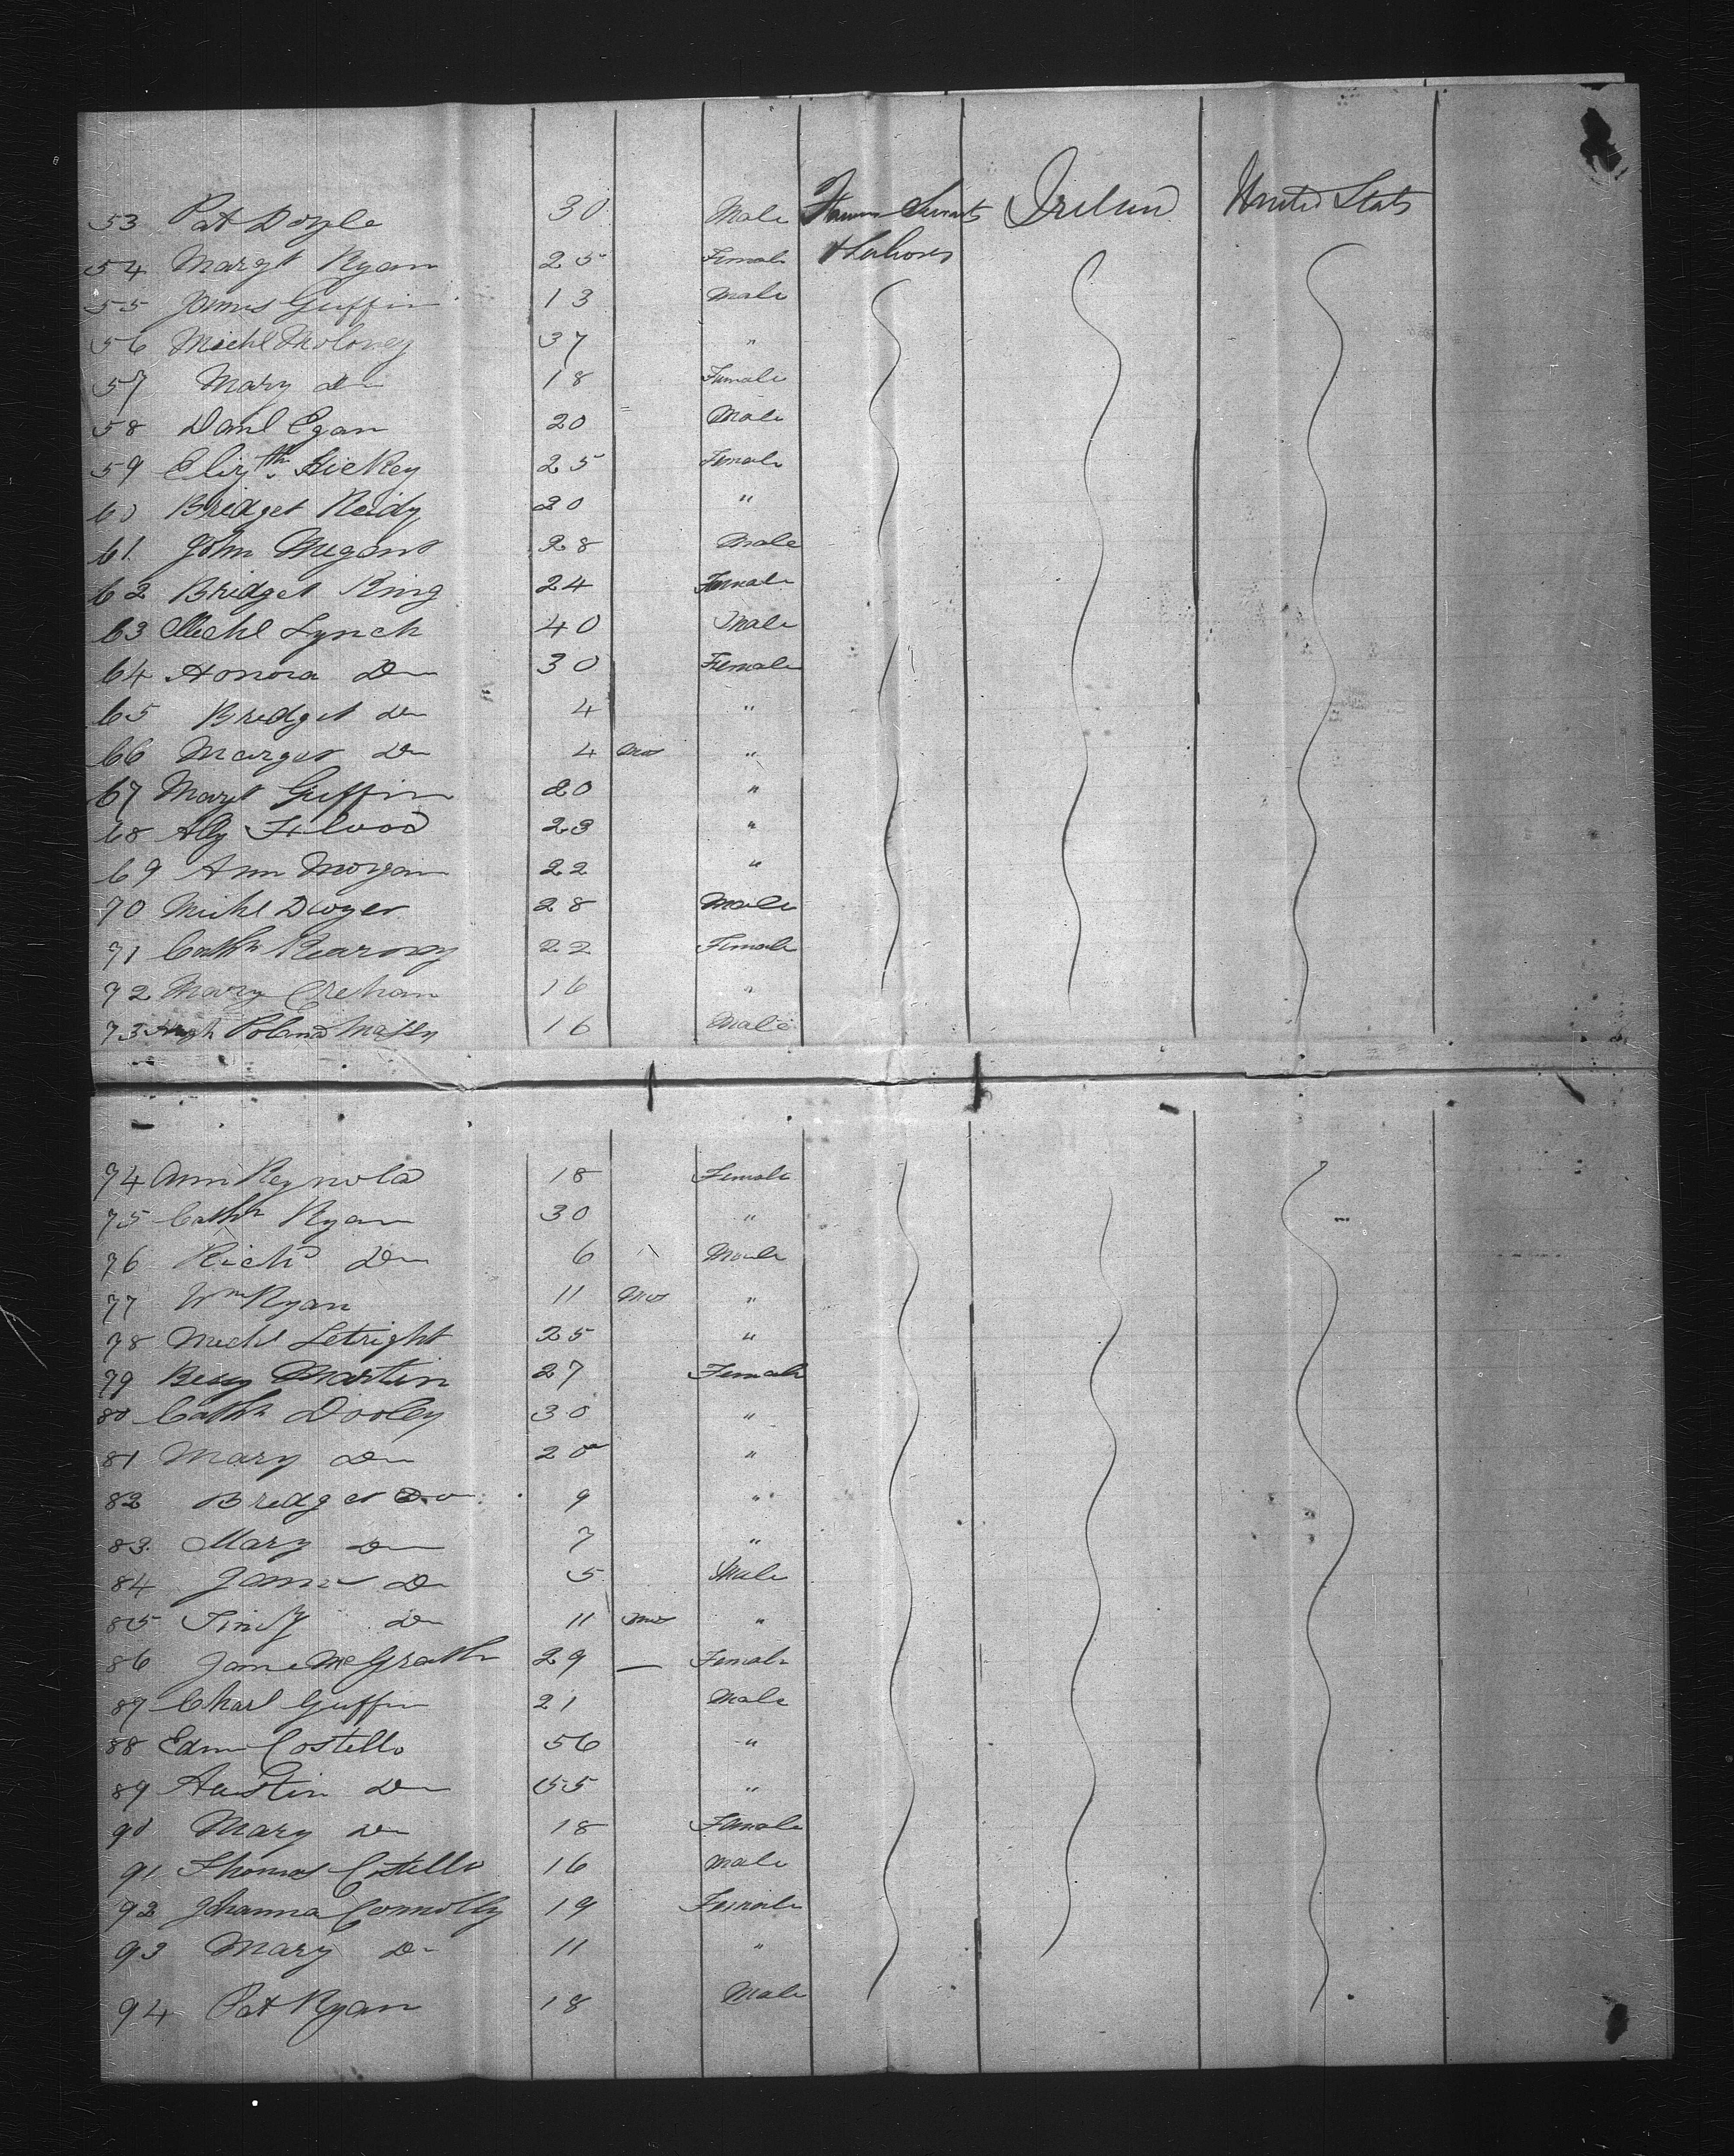 53 Pat Doyle 30 Male Farmers Servants Ireland United States
54 Margt Ryan 25 Female & Labores
55 James Griffin 13 Male
56 Michl Moloney 37 "
57 Mary Do 18 Female
58 Danl Egan 20 Male
59 Elizth Hickey 25 Female
60 Bridget Reidy 20 "
61 John 28 Male
62 Bridget King 24 Female
63 Michl Lynch 40 Male
64 Honora Do 30 Female
65 Bridget Do 4 "
66 Marget Do 4 Mos "
67 Margt Griffin 20 "
68 23 "
69 Ann Morgan 22 "
70 Michl Dwyer 28 Male
71 Cathn Kearney 22 Female
72 Mary Crehan 16 "
73 Hugh Poland Massy 16 Male
74 Ann Reynold 18 Female
75 Cathn Ryan 30 "
76 Richd Do 6 Male
77 Wm Ryan 11 Mos "
78 Michl Letright 25 "
79 Martin 27 Female
80 Cathn Dooley 30 "
81 Mary Do 20 "
82 Bridget Do 9 "
83 Mary Do 7 "
84 James Do 5 Male
85 Do 11 Mos "
86 Jane McGrath 29 — Female
87 Charl Griffin 21 Male
88 Edm Costello 56 "
89 Austin Do 55 "
90 Mary Do 18 Female
91 Thomas Costello 16 Male
92 Johanna Connolly 19 Female
93 Mary Do 11 "
94 Pat Ryan 18 Male